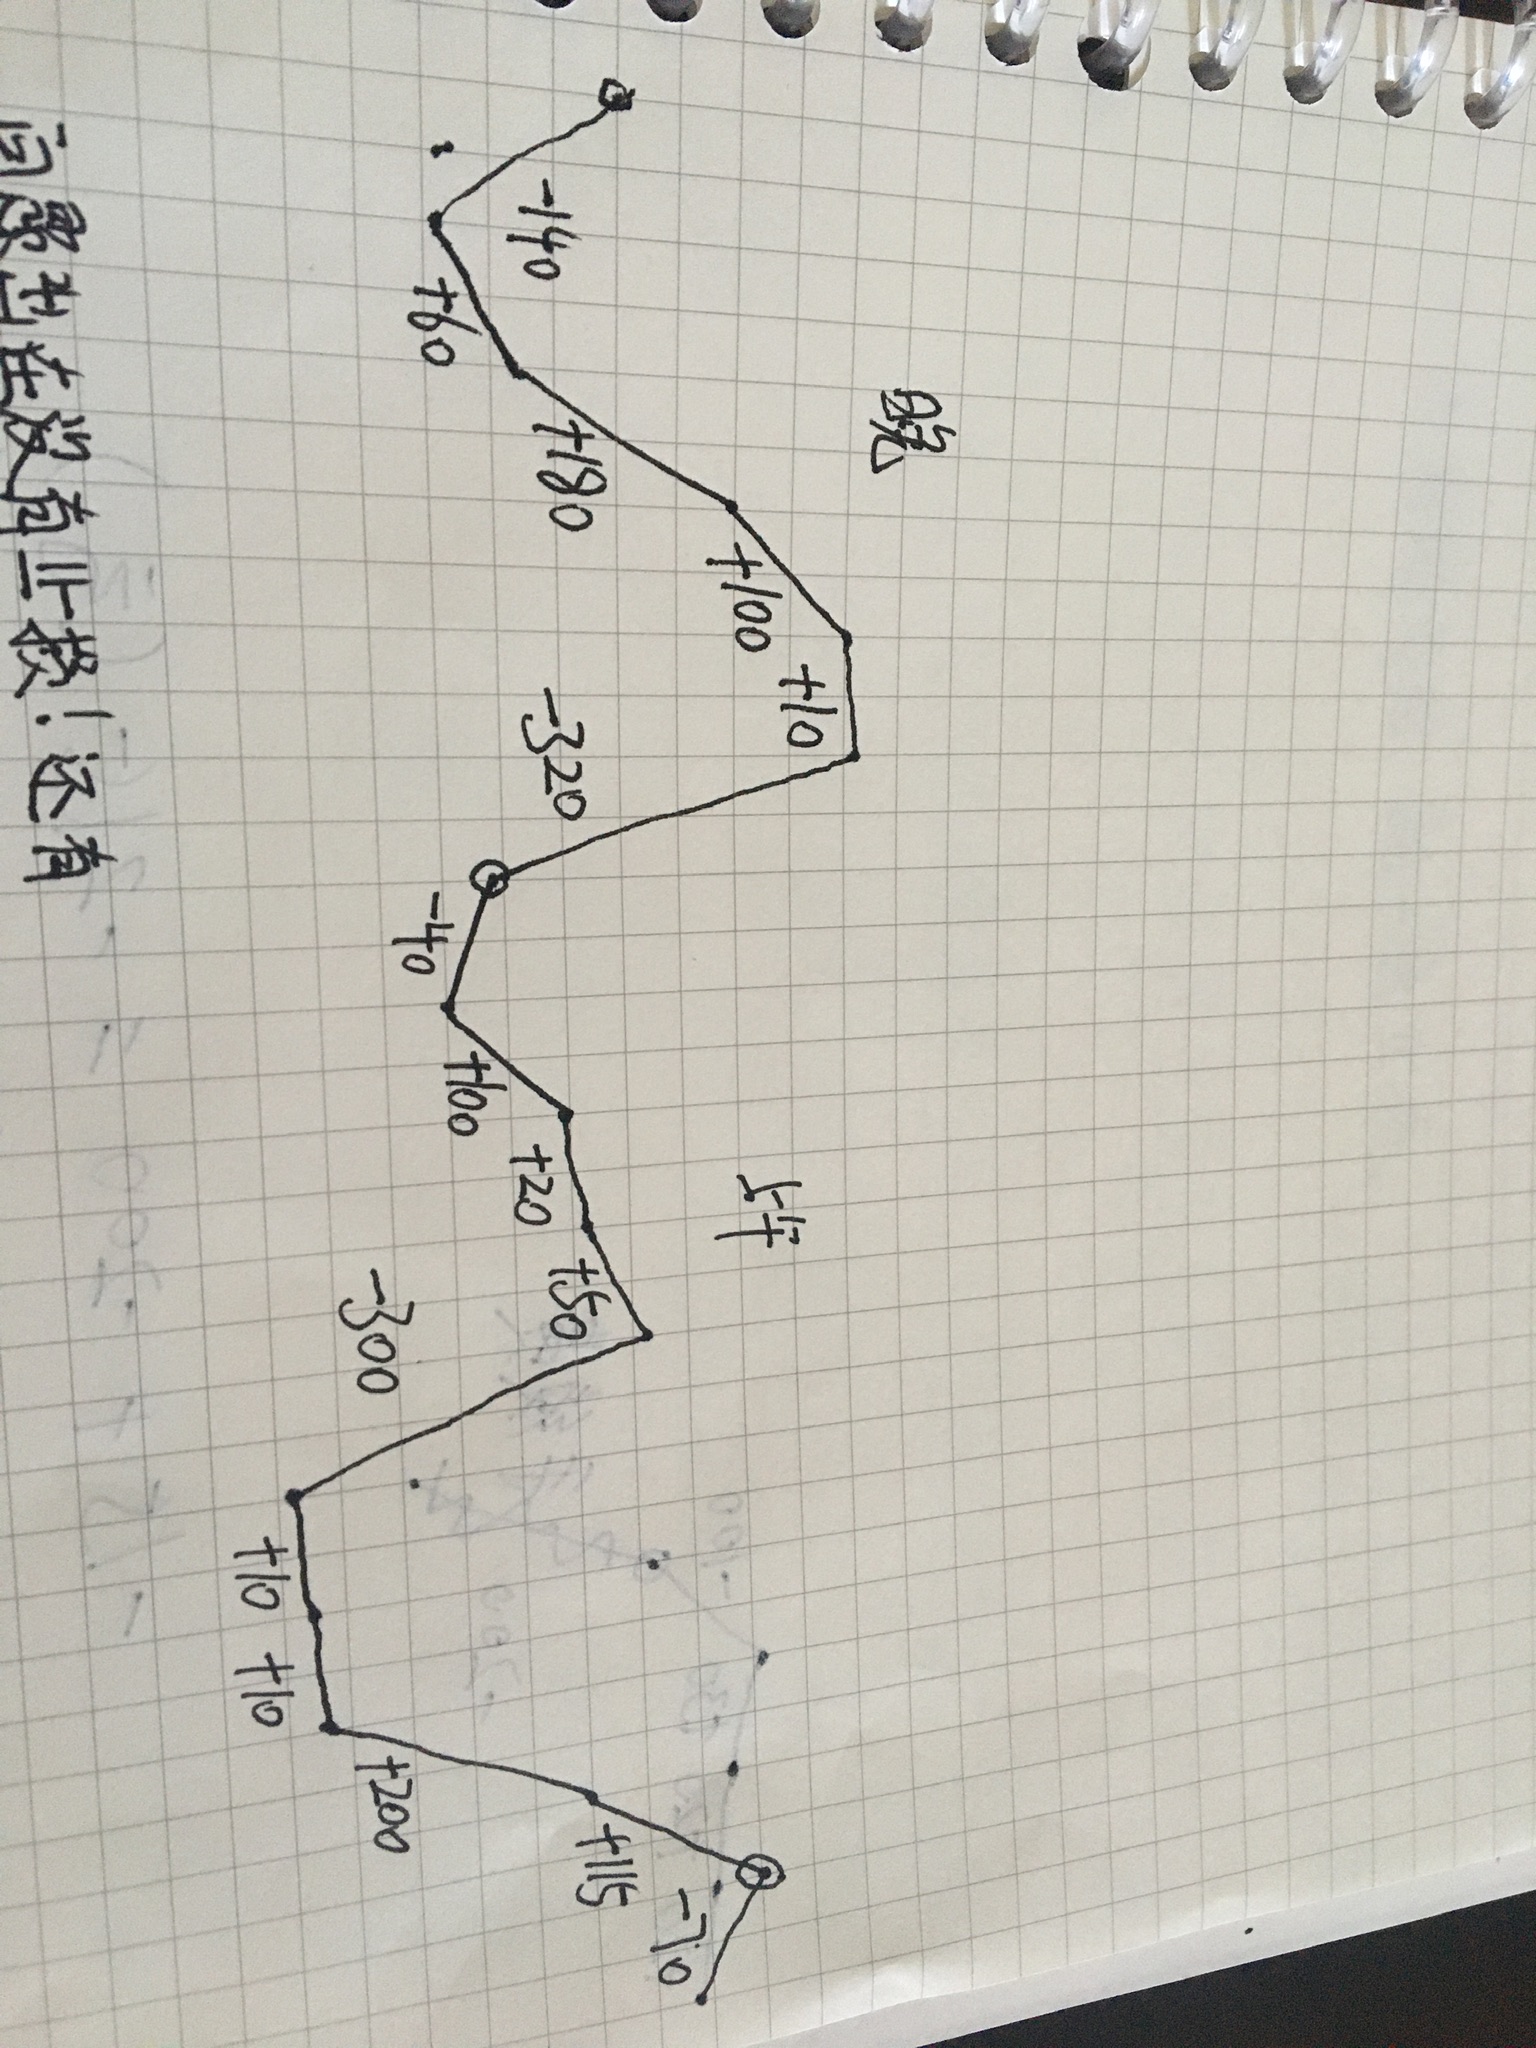 晚
上午
-140
+60
+180
+100
+10
-320
-40
+100
+20
+50
-300
+10
+10
+200
+115
-70
问题出在没有止损！还有